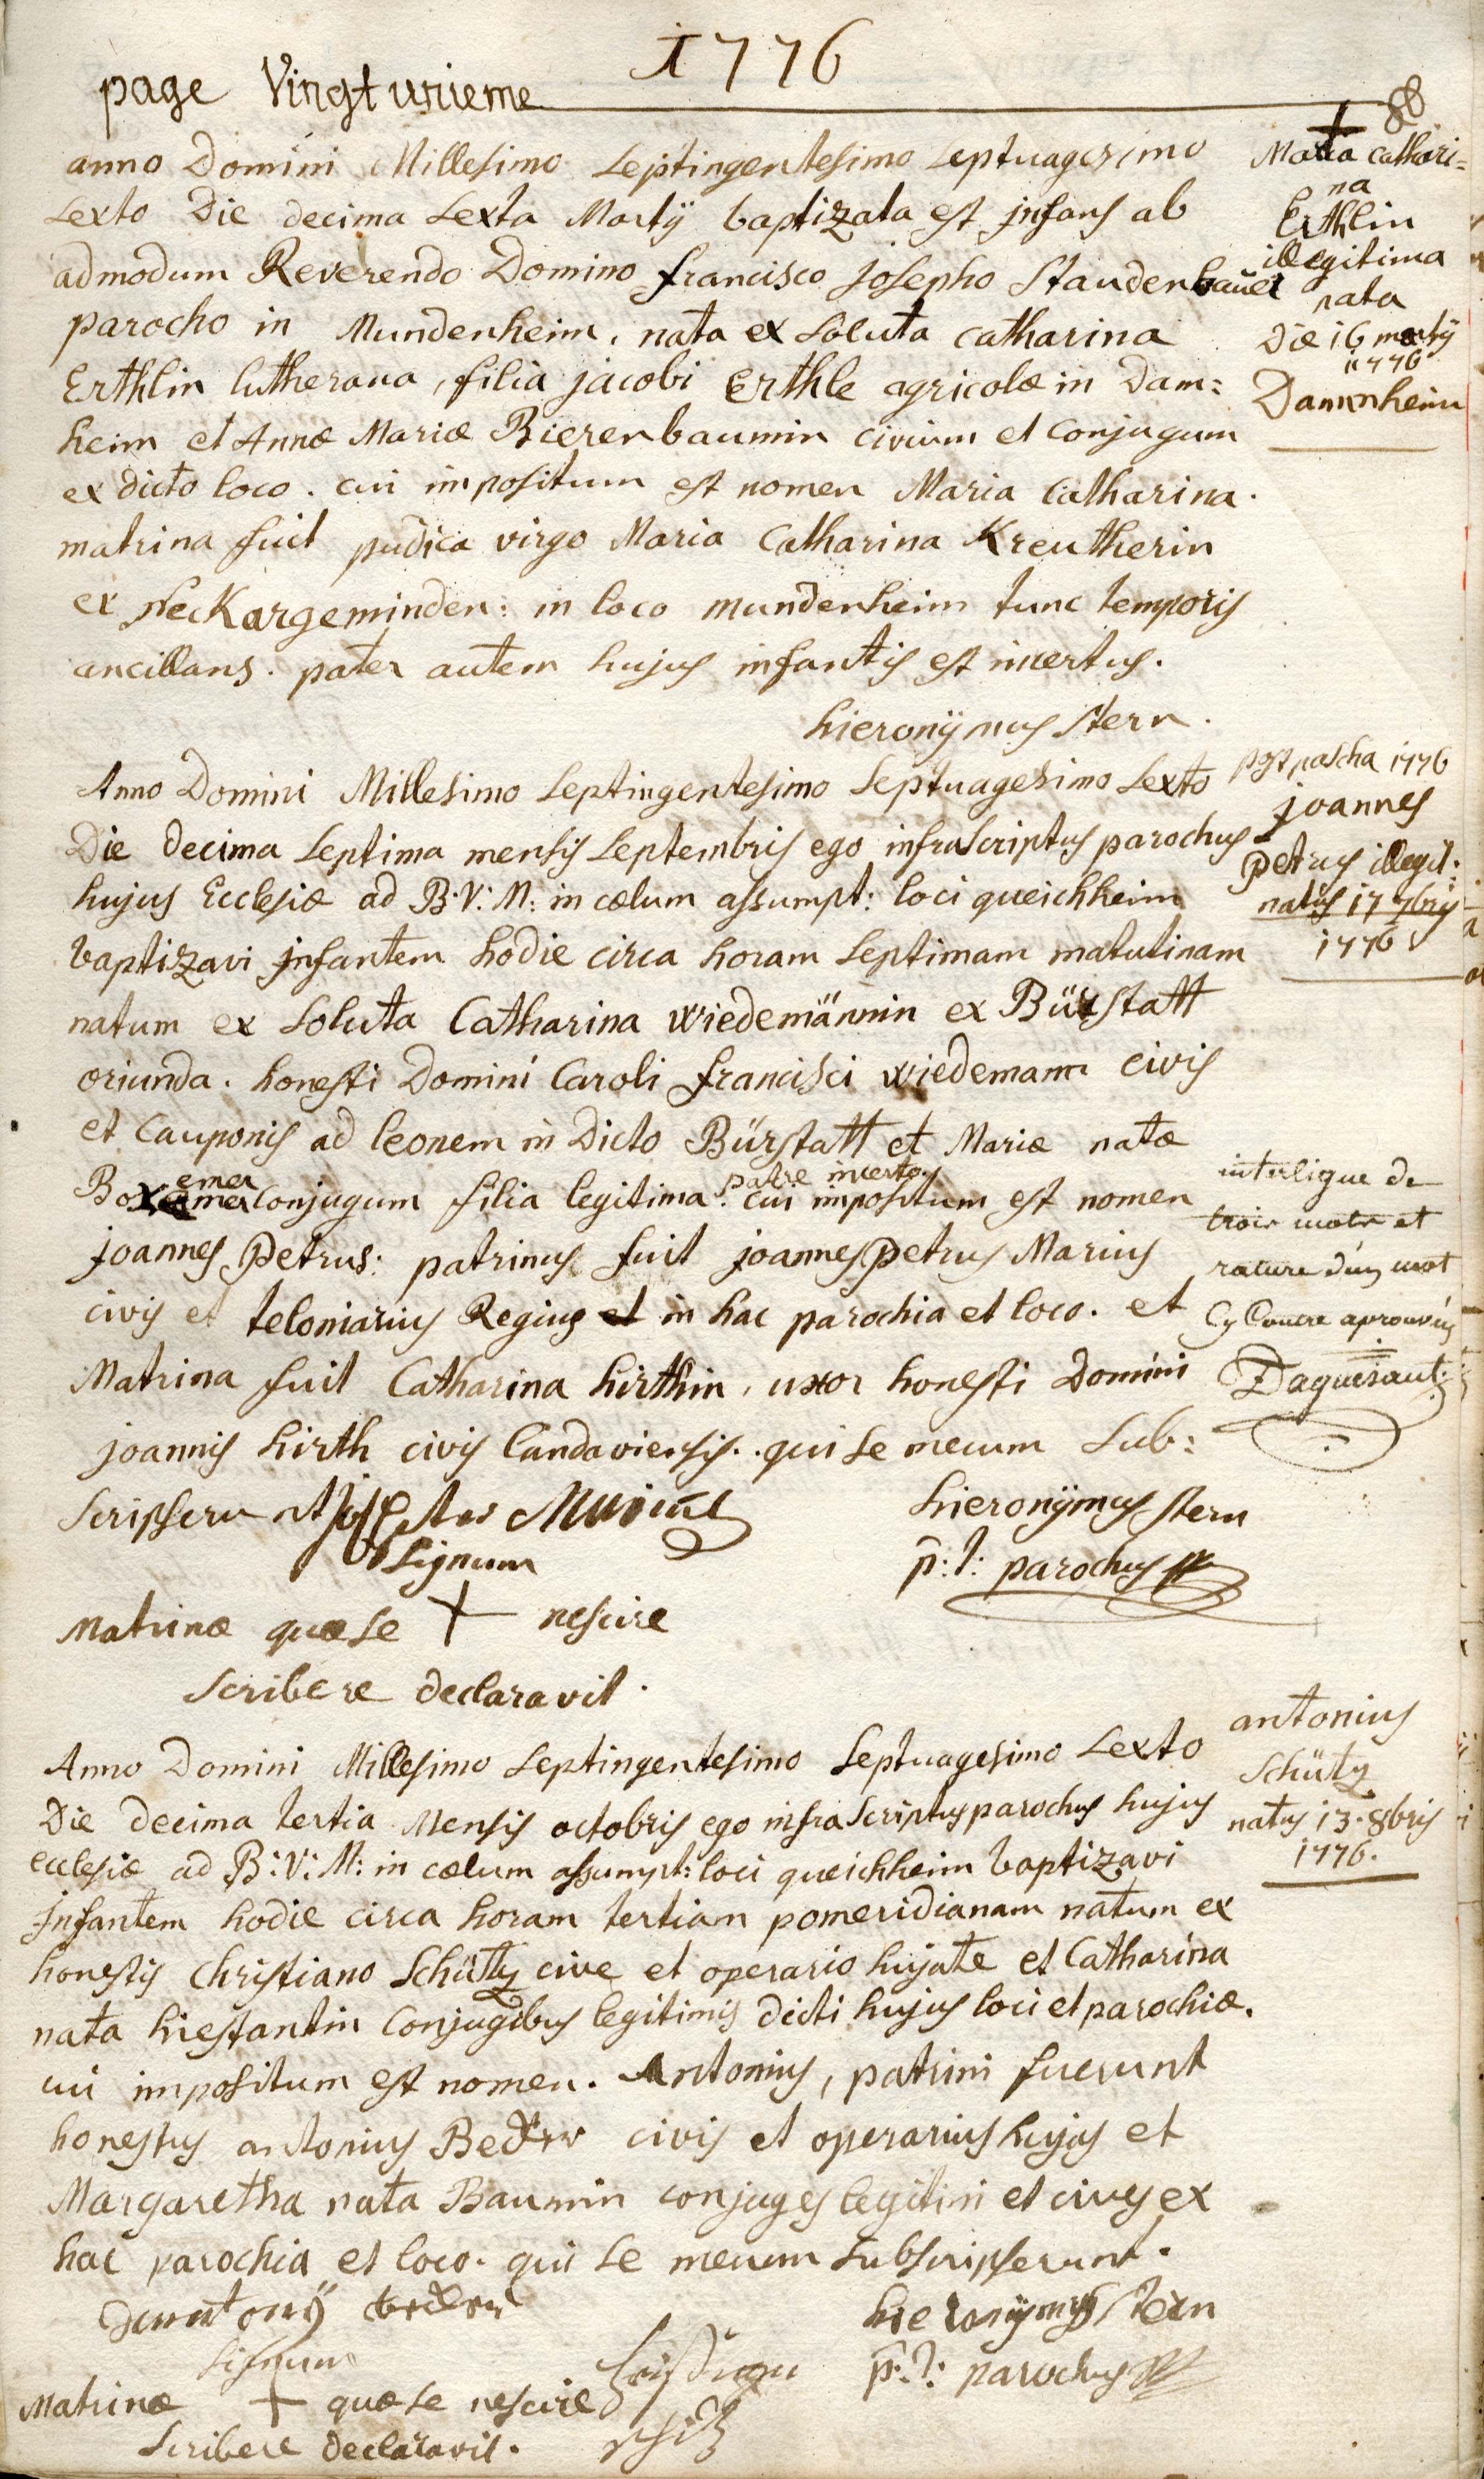 1776
page Vingt unieme
88
anno Domini Millesimo Septingentesimo Septuagesimo
Sexto Die decima Sexta Martÿ baptizata est jnfans ab
admodum Reverendo Domino francisco Josepho Staudenbauer
parocho in Mundenheim, nata ex Soluta Catharina
Erthlin lutherana, filia jacobi Erthle agricolæ in Dam:
heim et Annæ Mariæ Bierenbaumin civium et Conjugum
ex dicto loco. cui impositum est nomen Maria Catharina.
matrina fuit pudica virgo Maria Catharina Kreutherin
ex Neckargeminden: in loco mundenheim tunc temporis
ancillans. pater autem hujus infantis est incertus.
hieronÿmus Stern.
Maria Cathari=
na
Erthlin
illegitima
nata
Die 16 martÿ
1776
Dammheim
Anno Domini Millesimo Septingentesimo Septuagesimo Sexto
Die decima Septima mensis Septembris ego infraScriptus parochus
hujus Ecclesiæ ad B: V: M: in cælum assumpt: loci queichheim
baptizavi jnfantem hodie circa horam Septimam matutinam
natum ex Soluta Catharina Wiedemännin ex Bürstatt
oriunda. honesti Domini Caroli francisci Wiedemann civis
et Cauponis ad leonem in Dicto Bürstatt et Mariæ natæ
emer patre incerto
Boxemer Conjugum filia legitima. cui impositum est nomen
joannes Petrus: patrinus fuit joannes Petrus Marius
civis et teloniarius Regius et in hac parochia et loco. et
Matrina fuit Catharina hirthin, uxor honesti Domini
joannis hirth civis Candaviensis. qui Se mecum Sub:
Scripserunt
Signum
Matrinæ quæ Se + nescire
Scribere declaravit.
hieronÿmus Stern
p: t: parochus
post pascha 1776
joannes
Petrus illegit:
natus 17 7bris
1776
interligne de
trois mots et
rature d'un mot
Cy Contre aprouvés
Daguesaut
Anno Domini Millesimo Septingentesimo Septuagesimo Sexto
Die decima tertia Mensis octobris ego infraScriptus parochus hujus
ecclesiæ ad B: V: M: in cælum assumpt: loci queichheim baptizavi
Jnfantem hodie circa horam tertiam pomeridianam natum ex
honestis Christiano Schütz cive et operario hujate et Catharina
nata hiestantin Conjugibus legitimis dicti hujus loci et parochiæ.
cui impositum est nomen. Antonius, patrini fuerunt
honestus antonius Becker civis et operarius hujas et
Margaretha nata Baumin conjuges legitimi et cives ex
hac parochia et loco. qui Se mecum Subscripserunt.
hieronÿmus Stern
p: t: parochus
Signum
Matrinæ + quæ Se nescire
Scribere declaravit.
antonius
Schütz
natus 13. 8bris
1776.